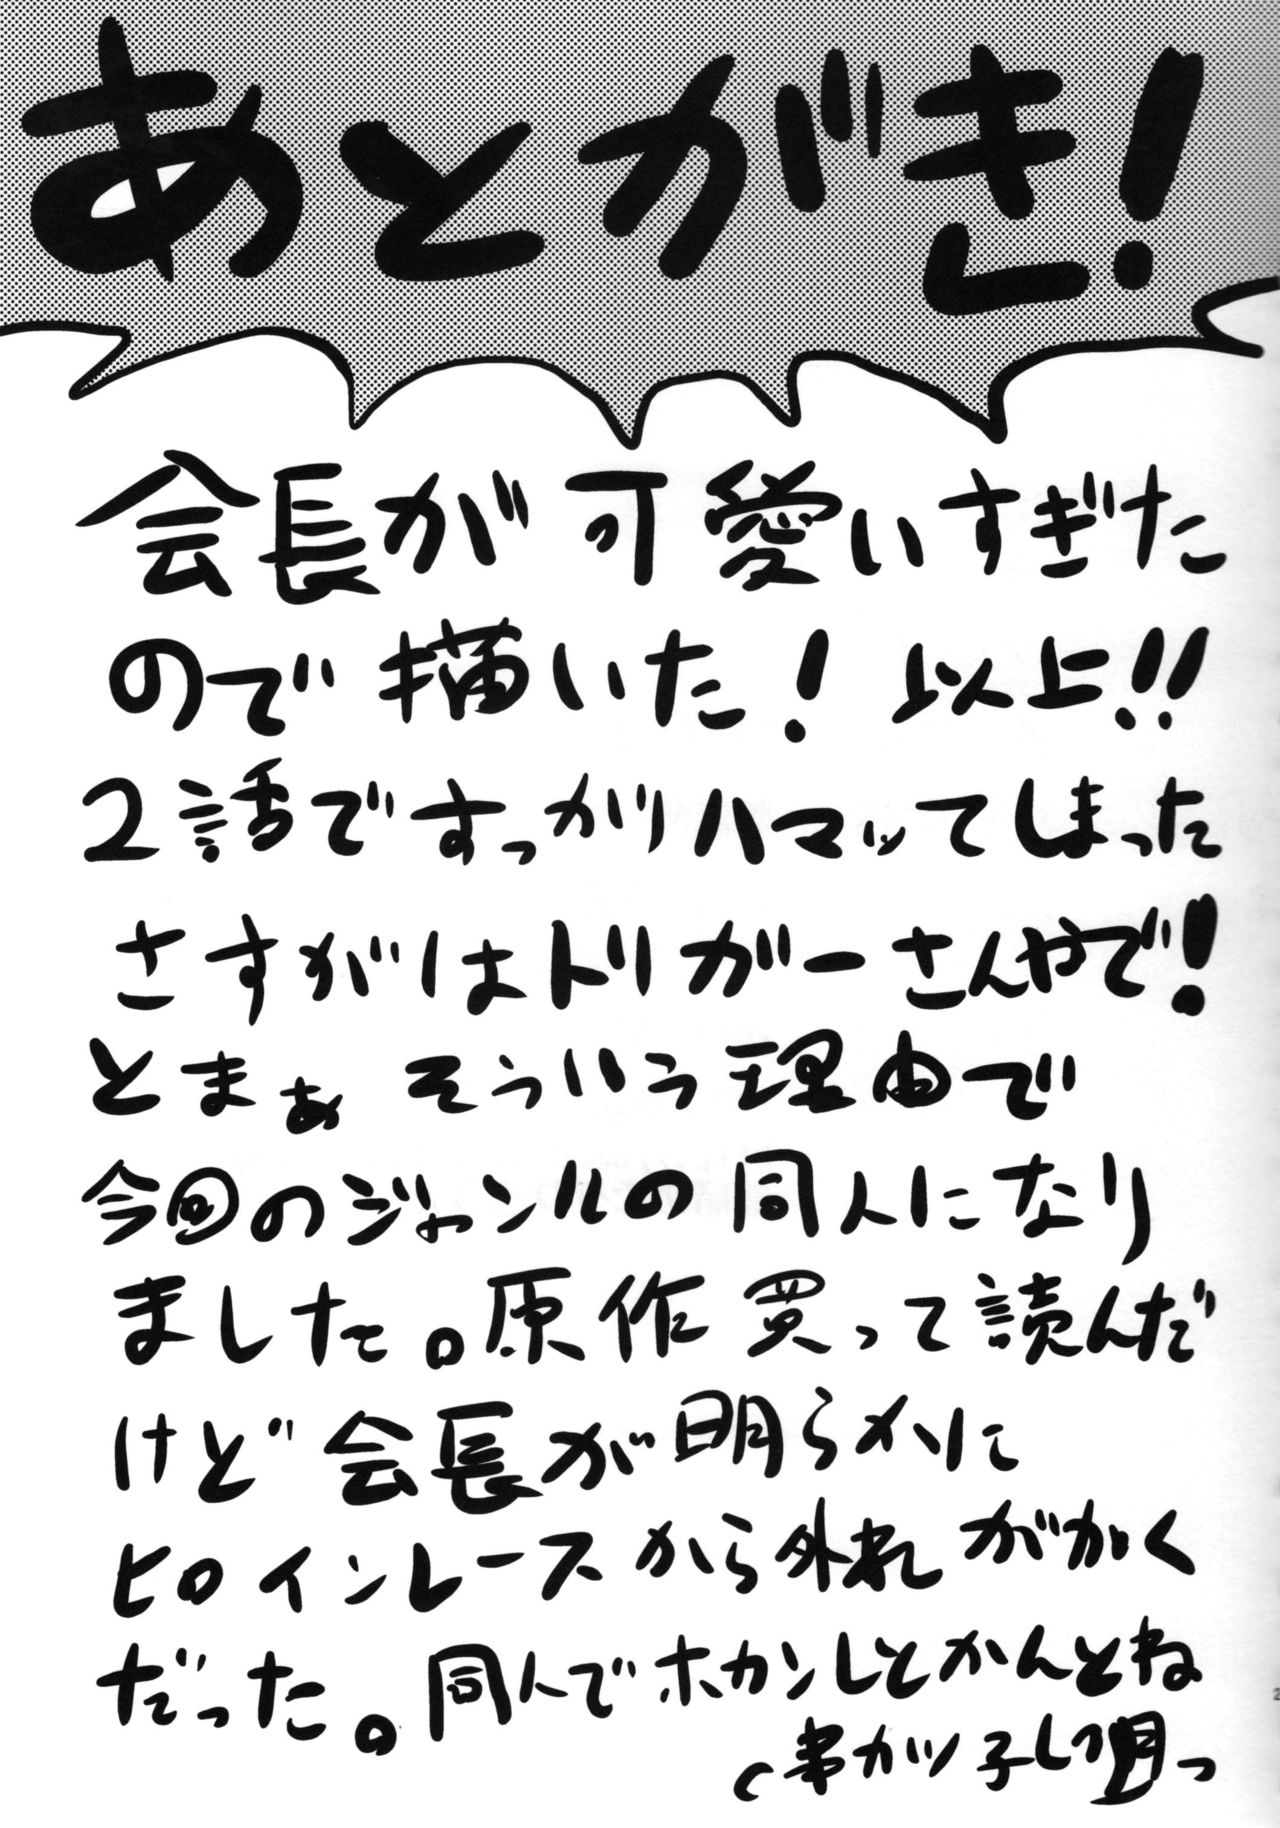 あとがき!
会長が可愛いすぎた
ので描いた! 以上!!
2話ですっかりハマッてしまった
さすがはトリガーさんやで!
とまぁ そういう理由で
今回のジャンルの同人になり
ました。原作買って読んだ
けど会長が明らかに
ヒロインレースから外れ
だった。同人でホカンしとかんとね
串カツ子